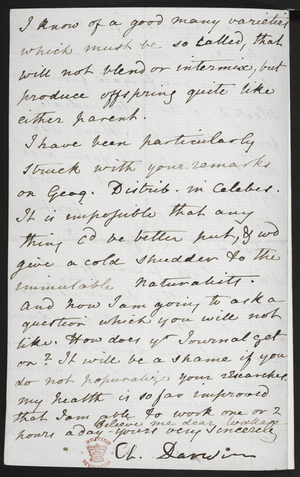 I know of a good many varieties
which must be so called, that
will not blend or intermix, but
produce offspring quite like
either parent.
I have been particularly
struck with your remarks
on Geog. Distrib. in Celebes.
It is impossible that any
thing cd be better put, & wd
give a cold shudder to the
immutable naturalists.
And now I am going to ask a
question which you will not
like. How does yr Journal get
on? It will be a shame if you
do not popularize your researches.
My health is so far improved
that I am able to work one or 2
hours a day – Believe me dear Wallace
yours very sincerely
Ch. Darwin